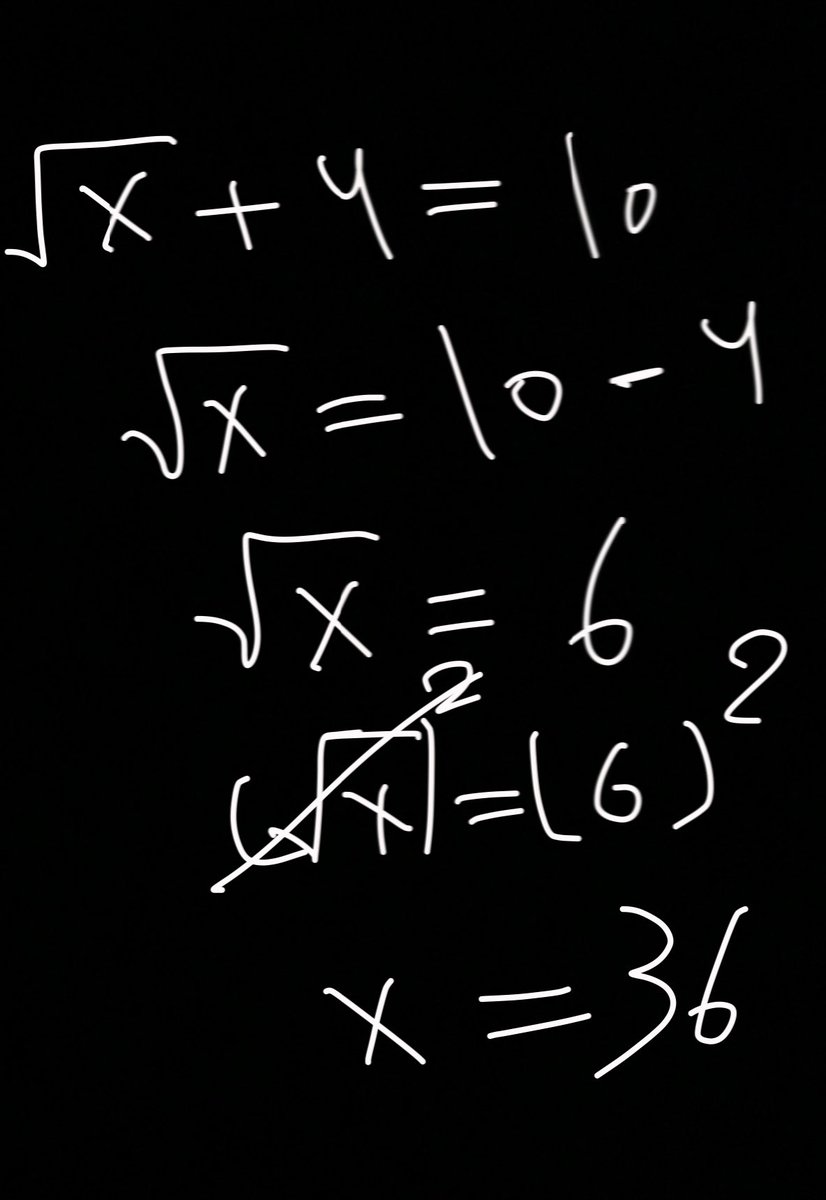 √x + 4 = 10
√x = 10 - 4
√x = 6
(√x)² = (6)²
x = 36